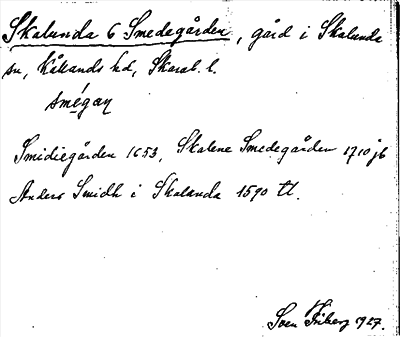 Skalunda 6 Smedegården, gård i Skalunda
sn, Kållands hd, Skarab. l.
smégaɳ
Smidiegården 1653, Skalene Smedegården 1710 jb
Anders Smidh i Skalunda 1590 tl.
Sven Friberg 1927.